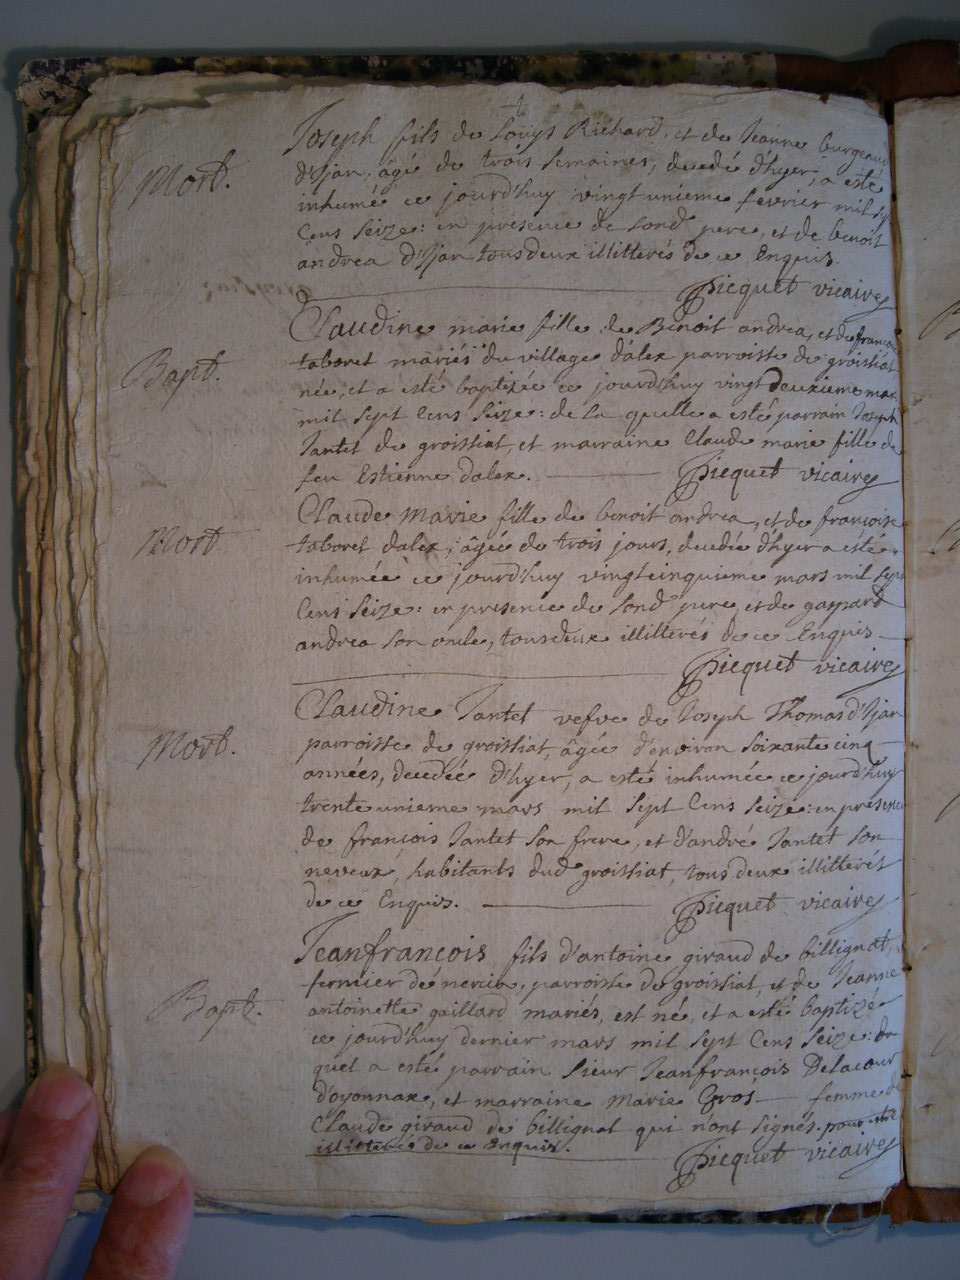 Joseph fils de Loüys Richard, et de Jeanne burgeaud
Mort.
d'Ijan, âgé de trois semaines, decedé d'hyer, a esté
inhumé ce jourd'huy vingtunieme fevrier mil sep
Cens seize: en présence de sond. pere, et de benoit
andrea d'Ijan tous deux illitterés de ce Enquis.
Picquet vicaire
Claudine marie fille de Benoit andrea, et de françoise
Bapt.
taboret mariés du village d'alex parroisse de groissiat
née, et a esté baptizée ce jourd'huy vingt deuxieme mars
mil sept Cens seize: de la quelle a esté parrain Joseph
Jantet de groissiat, et marraine Claude marie fille de
feu Estienne dalex. Picquet vicaire
Claude Marie fille de benoit andrea, et de françoise
Mort
taboret dalex, âgée de trois jours, decedée d'hyer a esté
inhumée ce jourd'huy vingtcinquieme mars mil sept
Cens seize: en presence de sond. pere, et de gaspard
andrea son oncle, tous deux illitterés de ce Enquis
Picquet vicaire
Claudine Jantet vefve de Joseph Thomas d'Ijan
Mort.
parroisse de groissiat, âgée d'environ soixante cinq
années, decedée d'hyer, a esté inhumée ce jourd'huy
trente unieme mars mil sept Cens seize: en présence
de françois Jantet son frere, et d'andré Jantet son
neveux, habitants dud. groissiat, tous deux illitterés
de ce Enquis. Picquet vicaire
Jeanfrancois fils d'antoine giraud de billignat,
fermier de nercia, parroisse de groissiat, et de Jeanne
Bapt.
antoinette gaillard mariés, est né, et a esté baptizé
ce jourd'huy dernier mars mil sept Cens seize: du
quel a esté parrain sieur Jeanfrançois Delacour
d'oyonnax, et marraine Marie Gros femme de
Claude giraud de billignat qui n'ont signés. pour etre
illitterés de ce enquis. Picquet vicaire